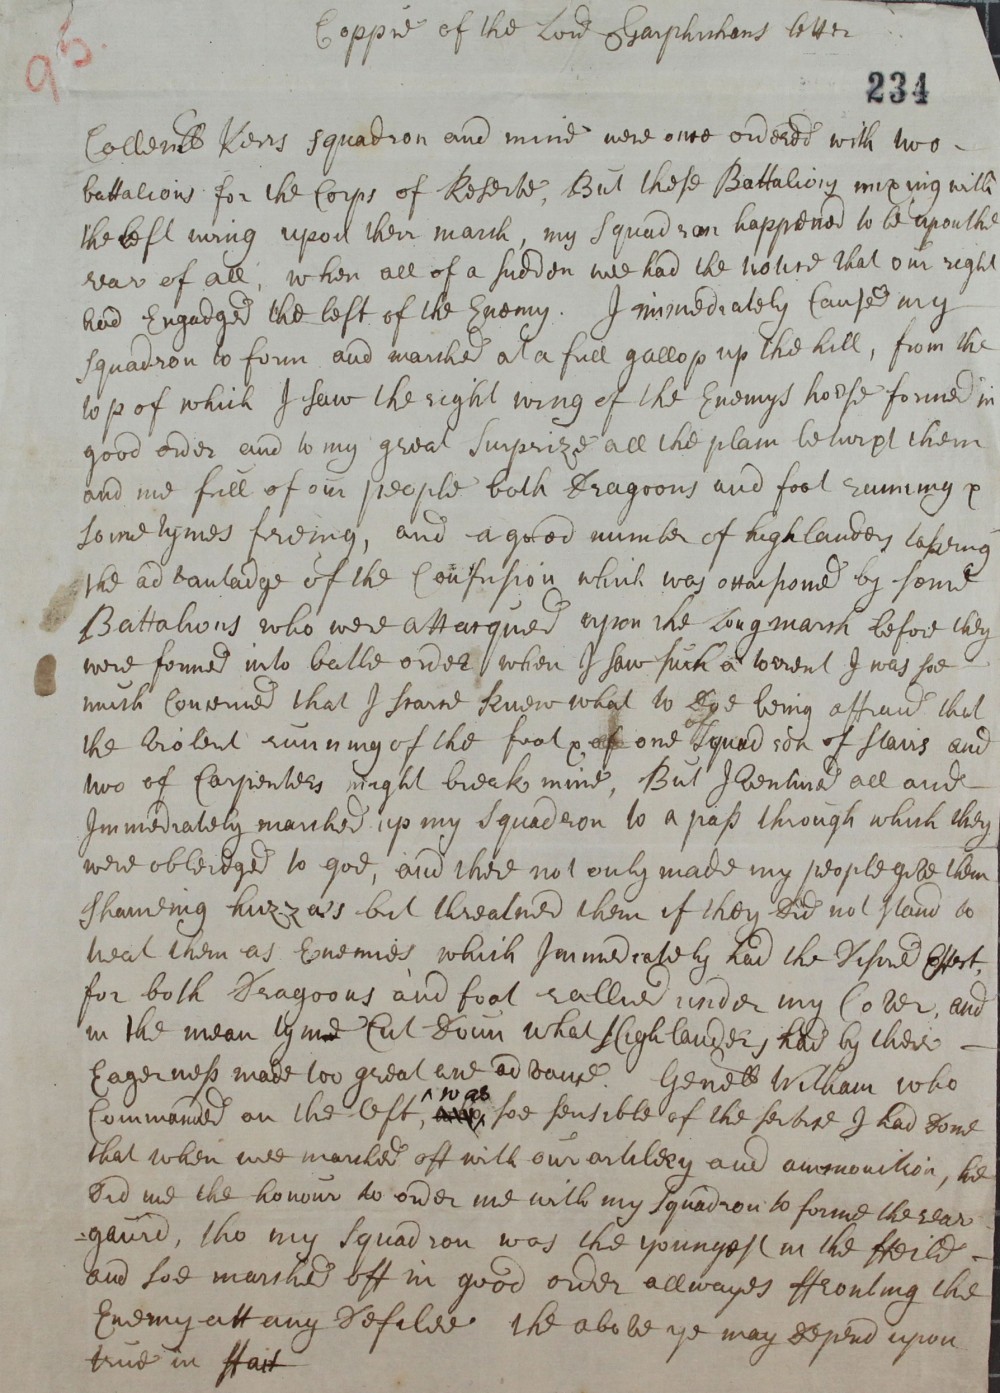 Coppie of the Lord Garphichens letter
95.
234
Collenlls Kers squadron and mine were once ordered with two
battalions for the Corps of Reserve, But these Battalions mixing with
the left wing upon ther march, my squadron happened to be upon the
rear of all, when all of a sudden wee had the notice that our right
had Engadged the left of the Enemy. I immediately Caused my
squadron to form and marched at a full gallop up the hill, from the
top of which I saw the right wing of the Enemys horse formed in
good order and to my great surprize all the plain betwixt them
and me full of our people both Dragoons and foot running &
some tymes fireing, and a good number of highlanders takeing
the advantadge of the Confusion which was occasponed by some
Battalions who were attacqued upon the Long march before they
were formed into batle order, when I saw such a torrent I was soe
much Concerned that I scarce knew what to Doe being affraid that
the violent running of the foot & of one squadron of Stairs and
two of Carpenters might break mine, But I ventured all and
Immediately marched up my squadron to a pass through which they
were obleidged to goe, and there not only made my people give them
shameing huzza's but threatned them if they did not stand to
treat them as Enemies which Immediately had the Desired Effect,
for both Dragoons and foot rallied under my Cover, and
in the mean tyme Cut Doun what Highlanders had by their
Eagerness made too great ane advance. Generll William who
Commanded on the left, was soe sensible of the service I had done
that when wee marched off with our artilery and amonition, he
Did me the honour to order me with my squadron to forme the rear
-gaurd, tho my squadron was the youngest in the ffeild
and soe marched off in good order allwayes ffronting the
Enemy att any Defilee the above ye may Depend upon
true in ffait